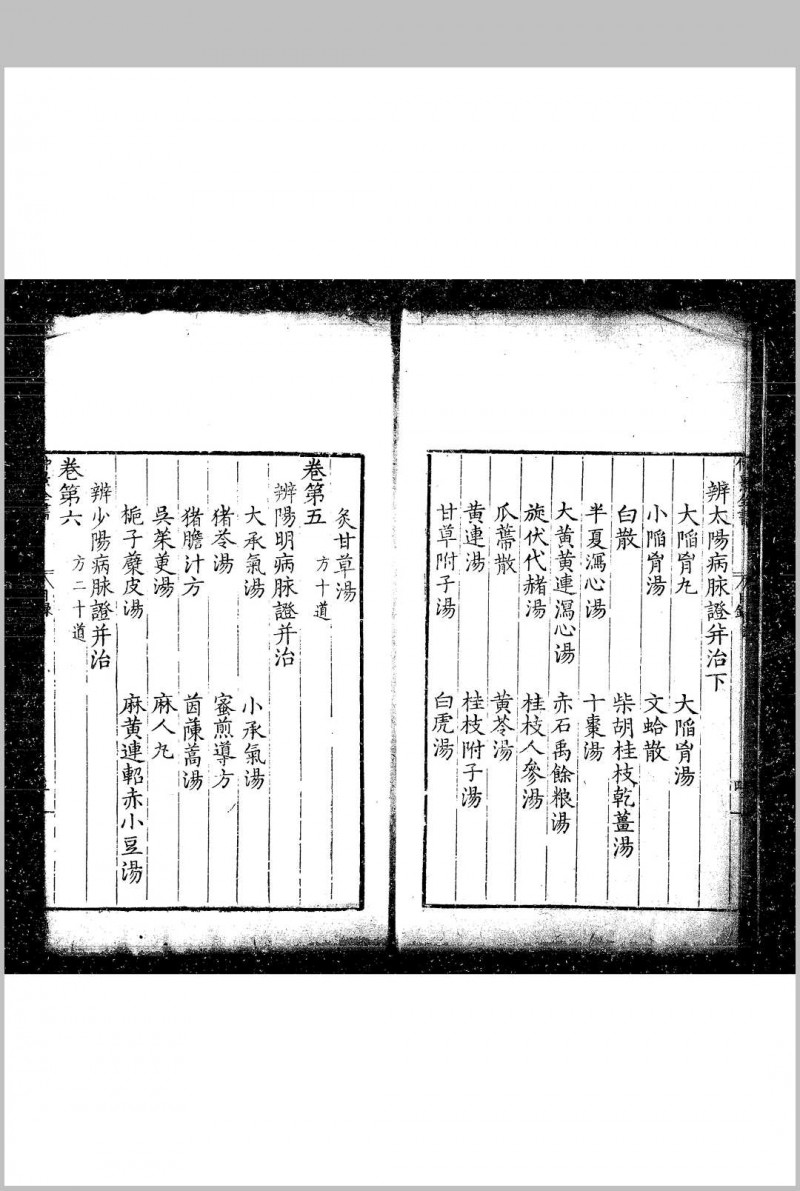 辨太陽病脉證并治下
大陷胷丸　大陷胷湯
小陷胷湯　文蛤散
白散　柴胡桂枝乾薑湯
半夏瀉心湯　十棗湯
大黄黄連瀉心湯　赤石禹餘粮湯
旋伏代赭湯　桂枝人參湯
瓜蔕散　黄芩湯
黄連湯　桂枝附子湯
甘草附子湯　白虎湯
炙甘草湯
卷第五　方十道
辨陽明病脉證并治
大承氣湯　小承氣湯
猪苓湯　蜜煎導方
猪膽汁方　茵蔯蒿湯
吳茱萸湯　麻人丸
梔子蘗皮湯　麻黄連軺赤小豆湯
辨少陽病脉證并治
卷第六　方二十道